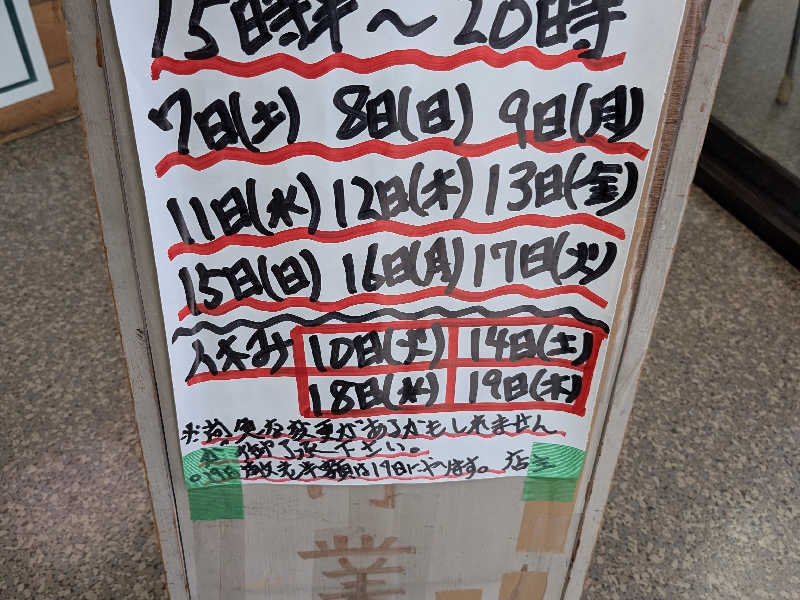 15時半～20時
7日(土) 8日(日) 9日(月)
11日(水) 12日(木) 13日(金)
15日(日) 16日(月) 17日(火)
休み 10日(火) 14日(土)
18日(水) 19日(木)
※尚急な変更があるかもしれません
が御了承下さい。
店主
業